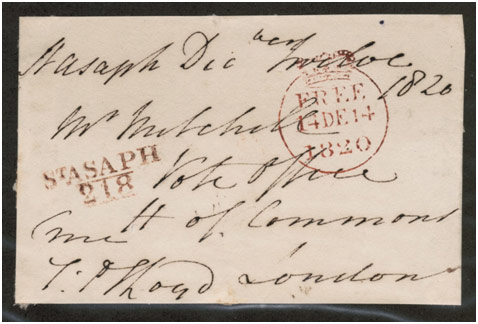 St asaph Decber Twelve
1820
Mr Mitchell
FREE
14 DE 14
1820
ST ASAPH
218
Vote Office
H of Commons
London